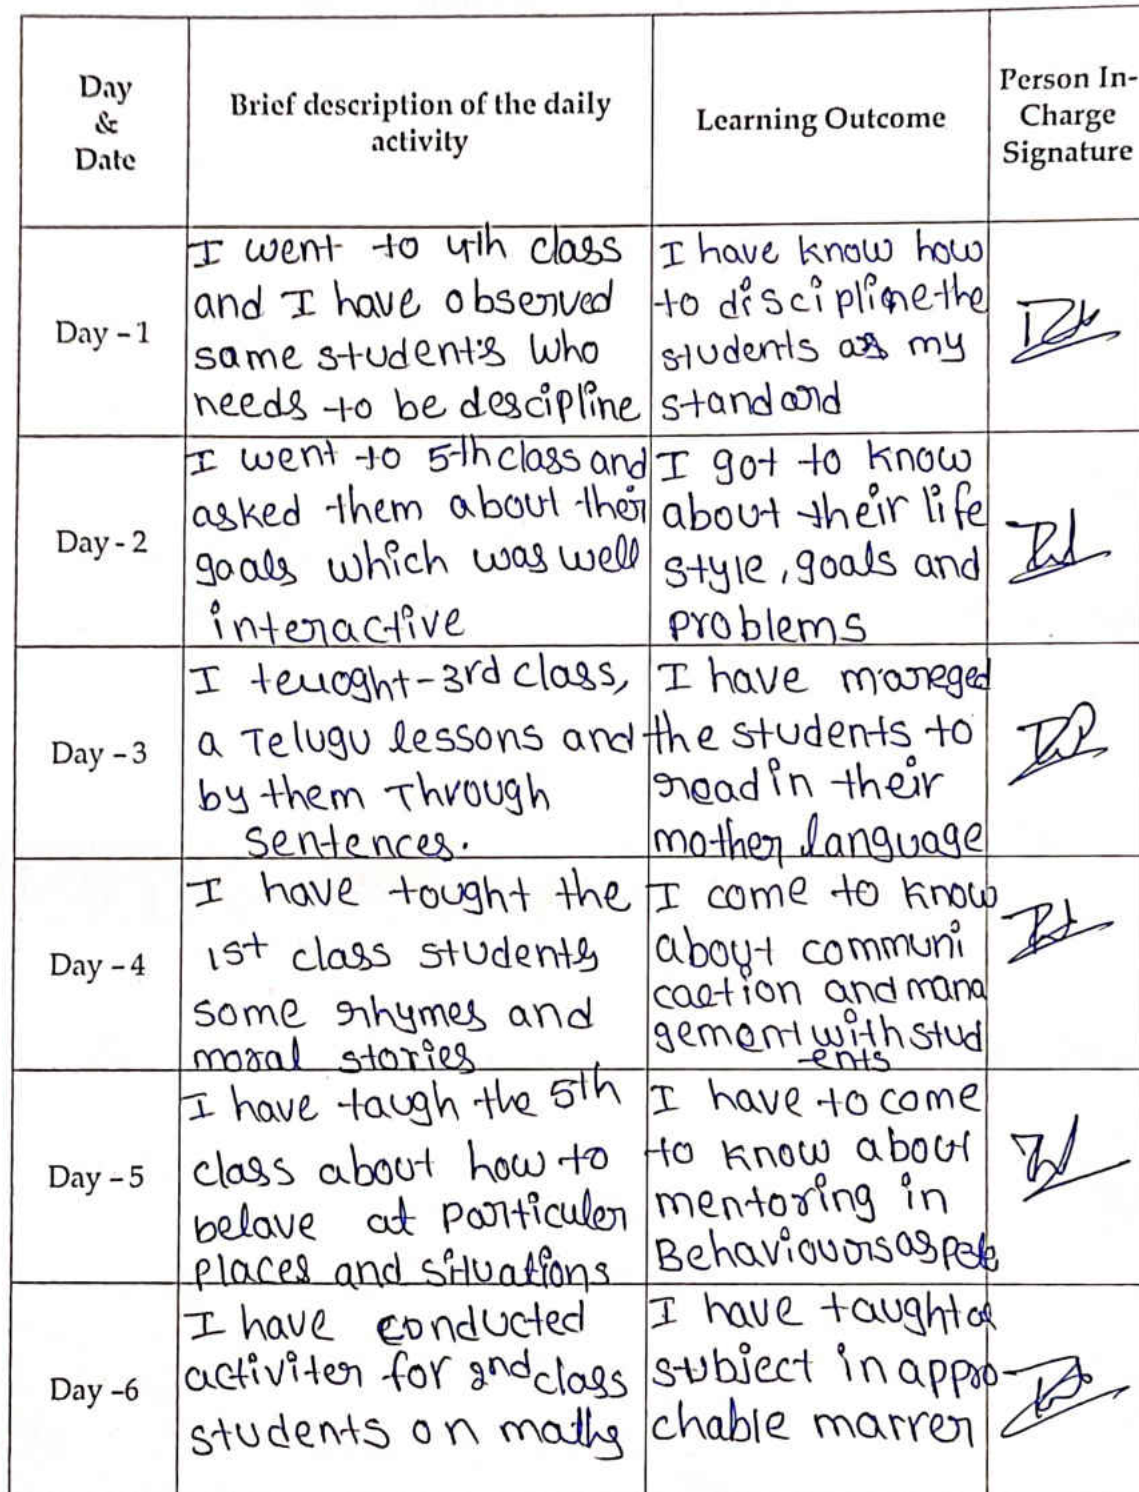 Day
&
Date
Brief description of the daily
activity
Learning Outcome
Person In-
Charge
Signature
Day - 1
I went to 4th class
and I have observed
same student's who
needs to be descipline
I have know how
to discipline the
students as my
standard
Day - 2
I went to 5th class and
asked them about their
goals which was well
interactive
I got to know
about their life
style, goals and
problems
Day - 3
I teuoght - 3rd class,
a Telugu lessons and
by them Through
sentences.
I have mareged
the students to
read in their
mother language
Day - 4
I have tought the
1st class students
some rhymes and
moral stories
I come to know
about communi
caction and mana
gement with stud
ents
Day - 5
I have taugh the 5th
class about how to
belave at particuler
places and situations
I have to come
to know about
mentoring in
Behaviouors
Day -6
I have conducted
activiter for 2nd class
students on maths
I have taught a
subject in appro
chable marrer